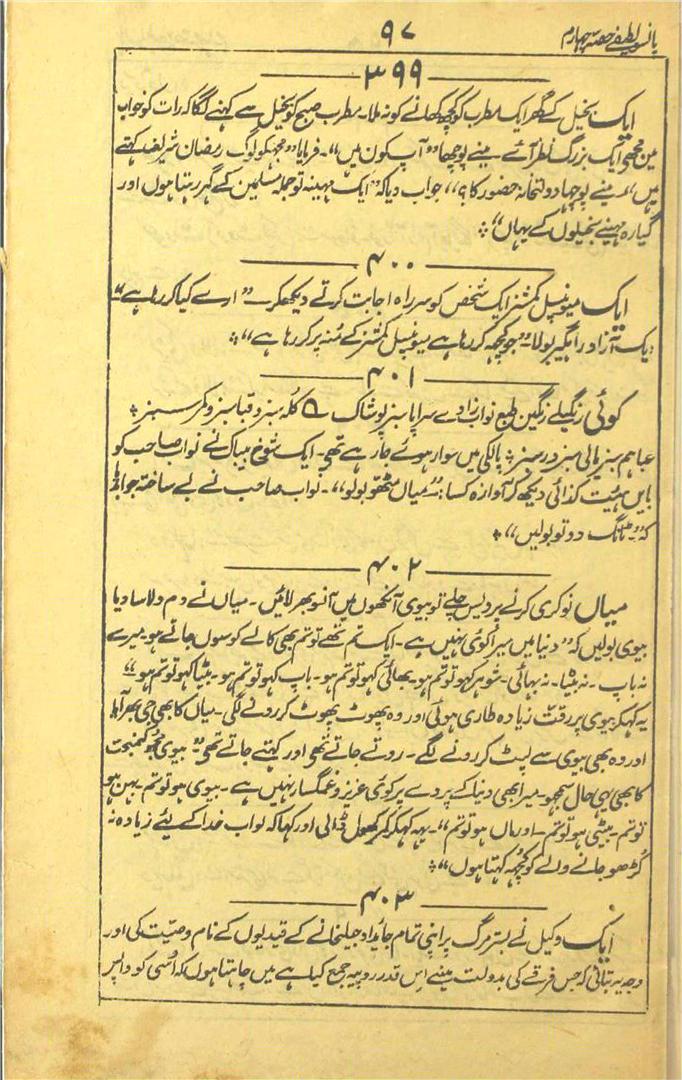 پانسو لطیفے حصہ چہارم
۹۷
۳۹۹
ایک بخیل کے گھر ایک مطرب کو کچھ کھانے کو نہ ملا۔ مطرب صبح کو بخیل سے کہنے لگا کہ رات کو خواب
مین مجھے ایک بزرگ نظر آئے۔ مینے پوچھا "آپ کون ہیں"۔ فرمایا "مجہکو لوگ رمضان شریف کہتے
ہیں"۔ مینے پوچہا دولتخانہ حضور کا؟" جواب دیا کہ "ایک مہینہ تو جملہ مسلمین کے گہر رہتا ہوں اور
گیارہ مہینے بخیلوں کے یہاں"
۴۰۰
ایک میونسپل کمشنر ایک شخص کو سرراہ اجابت کرتے دیکھکر۔ "ارے کیا کر رہا ہے"
ایک آزاد راہگیر بولا۔ "جو کچھ کر رہا ہے میونسپل کمشنر کے منہ پر کر رہا ہے"
۴۰۱
کوئی رنگیلے رنگین طبع نواب زادے سراپا سبز پوشاک کلہ سبز و قبا سبز و کمر سبز
عبا ہم سبز پالکی سبز در سبز پالکی میں سوار ہوئے جا رہے تھے۔ ایک شوخ بیباک نے نواب صاحب کو
بایں ہیئت کذائی دیکھ کر آوازہ کسا: "میاں مٹھو بولو"۔ نواب صاحب نے بے ساختہ جواب دیا
کہ "ٹانگ دو تو بولیں"
۴۰۲
میاں نوکری کرنے پردیس چلے تو بیوی آنکھوں میں آنسو بھر لائیں۔ میاں نے دم دلاسا دیا
بیوی بولیں کہ "دنیا میں میرا کوئی نہیں ہے۔ ایک تم تھے تو تم بھی کالے کوسوں جاتے ہو میرے
نہ باپ۔ نہ بیٹا۔ نہ بہائی۔ شوہر کہو تو تم ہو۔ بھائی کہو تو تم ہو۔ باپ کہو تو تم ہو۔ بیٹا کہو تو تم ہو"
یہ کہکر بیوی پر رقت زیادہ طاری ہوئی اور وہ پھوٹ پھوٹ کر رونے لگی۔ میاں کا بھی جی بھر آیا
اور وہ بھی بیوی سے لپٹ کر رونے لگے۔ روتے جاتے تھے اور کہتے جاتے تھے "بیوی مجھ کمبخت
کا بھی یہی حال سمجھو۔ میرا بھی دنیا کے پردے پر کوئی عزیز و غمگسار نہیں ہے۔ بیوی ہو تو تم۔ بہن ہو
تو تم۔ بیٹی ہو تو تم۔ اور ماں ہو تو تم"۔ یہہ کہکر کمر کھول ڈالی اور کہا کہ لو اب خدا کے لئے زیادہ نہ
کُڑھو جانے والے کو کچھ کہتا ہوں"
۴۰۳
ایک وکیل نے بستر مرگ پر اپنی تمام جائداد جیلخانے کے قیدیوں کے نام وصیت کی اور
وجہ یہ بتائی کہ جس فرقے کی بدولت مینے اس قدر روپیہ جمع کیا ہے میں چاہتا ہوں کہ اُسی کو واپس